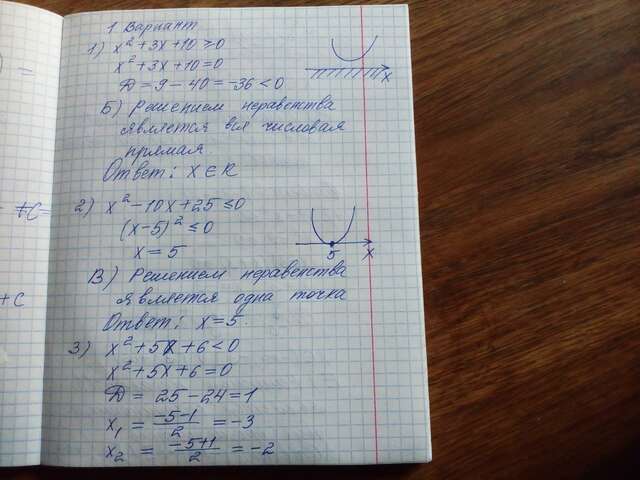 ) =
+C=
+C
1 Вариант
1) x² + 3x + 10 ≥ 0
x² + 3x + 10 = 0
Д = 9 - 40 = -36 < 0
x
Б) Решением неравенства
является вся числовая
прямая.
Ответ: X ∈ R
2) x² - 10x + 25 ≤ 0
(x-5)² ≤ 0
x = 5
5 x
В) Решением неравенства
является одна точка
Ответ: x = 5.
3) x² + 5x + 6 < 0
x² + 5x + 6 = 0
Д = 25 - 24 = 1
x₁ = (-5-1)/2 = -3
x₂ = (-5+1)/2 = -2